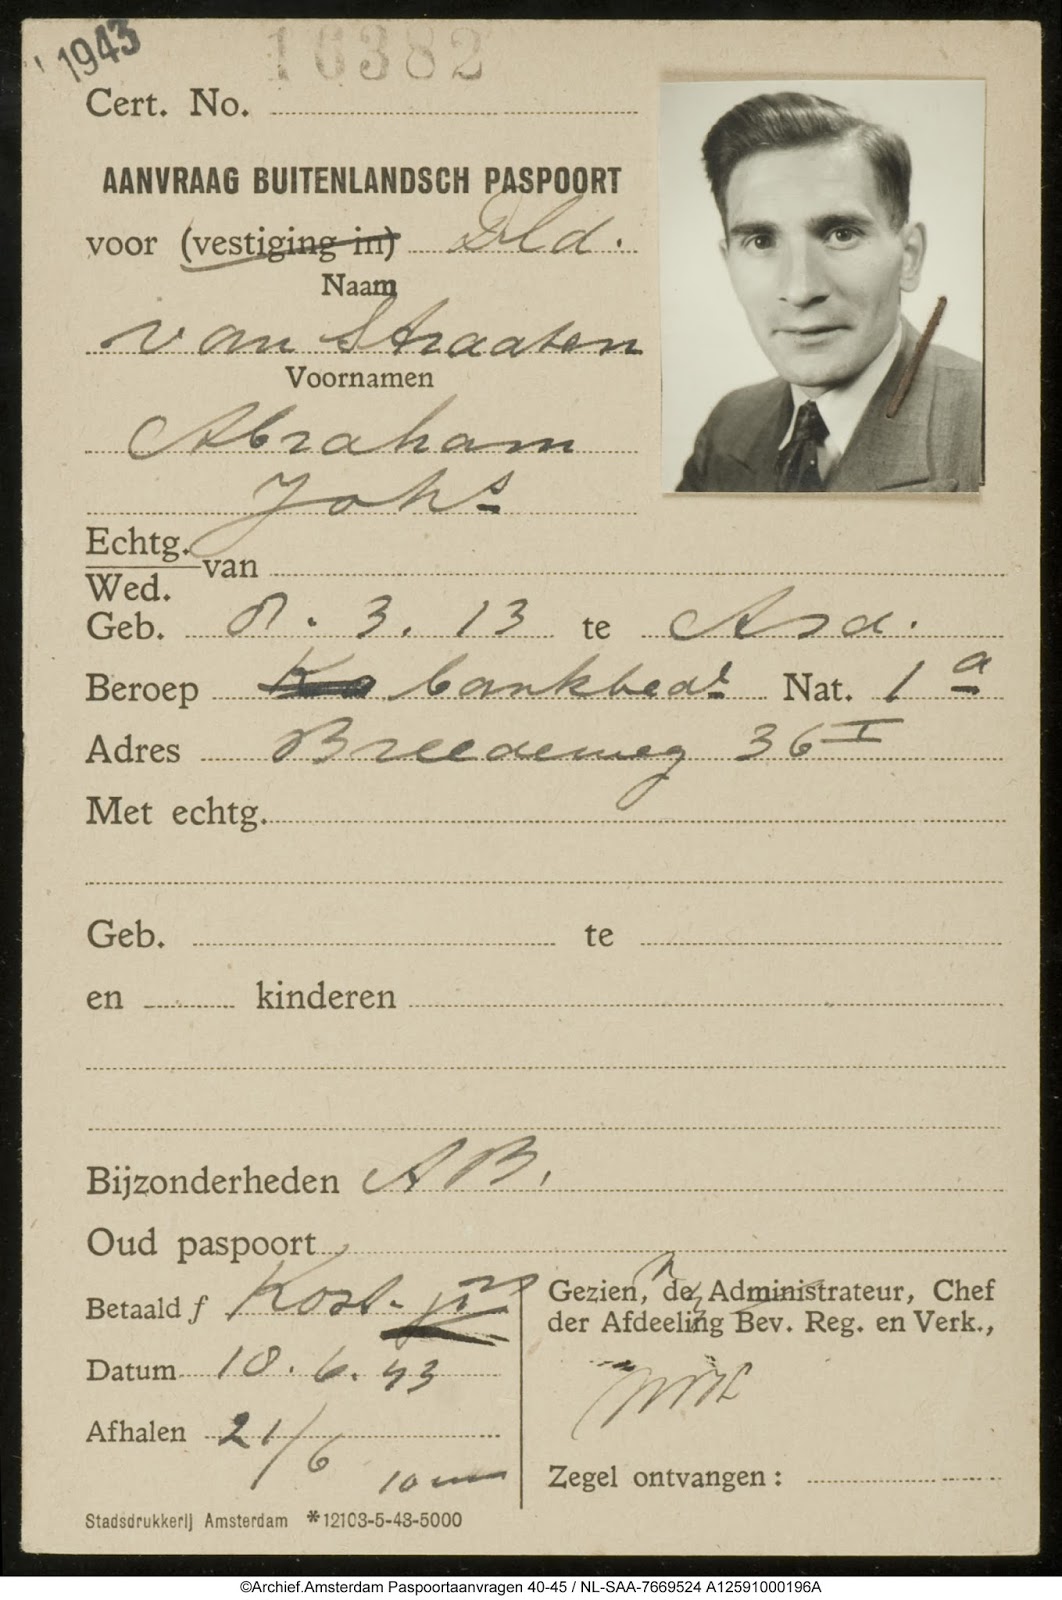 1943
10382
Cert. No.
AANVRAAG BUITENLANDSCH PASPOORT
voor (vestiging in) Dld.
Naam
van Straaten
Voornamen
Abraham
Johs
Echtg.
Wed. van
Geb. 8. 3. 13 te Asd.
Beroep bankbede Nat. 1a
Adres Breedeweg 36 I
Met echtg.
Geb. te
en kinderen
Bijzonderheden AB.
Oud paspoort
Betaald f Kost.
Datum 18. 6. 43
Afhalen 21/6
10
Gezien, de Administrateur, Chef
der Afdeeling Bev. Reg. en Verk.,
Zegel ontvangen :
Stadsdrukkerij Amsterdam *12103-5-43-5000
©Archief.Amsterdam Paspoortaanvragen 40-45 / NL-SAA-7669524 A12591000196A